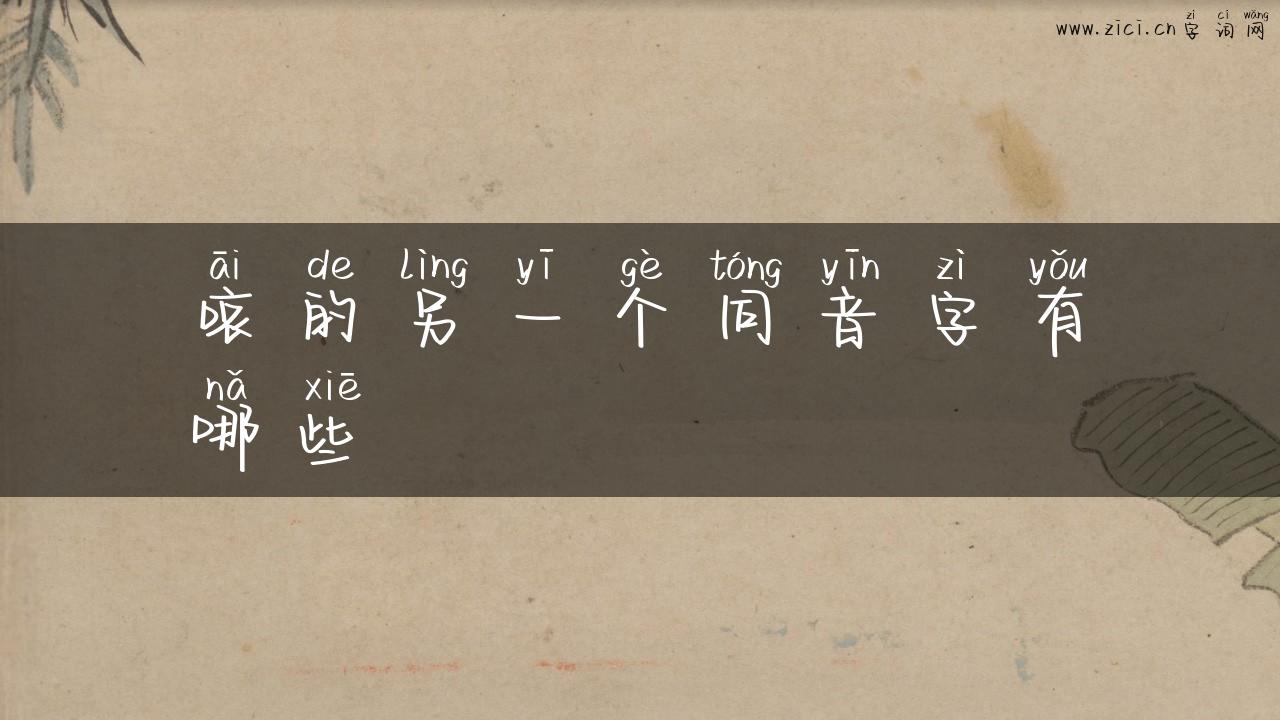 zì cí wǎng
www.zici.cn 字词网
āi de lìng yī gè tóng yīn zì yǒu
哀的另一个同音字有
nǎ xiē
哪些